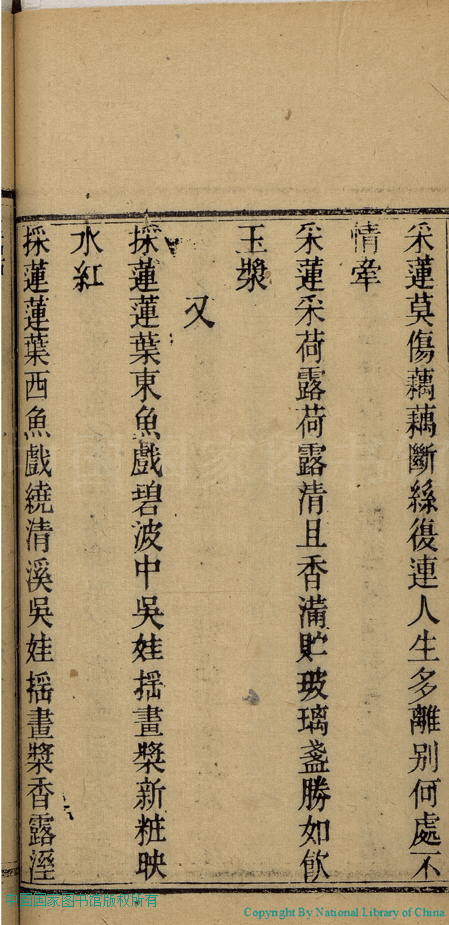 采蓮莫傷藕藕斷絲復連人生多離别何處不
情牽
采蓮采荷露荷露清且香滿貯玻璃盞勝如飲
玉漿
又
採蓮蓮葉東魚戲碧波中吳娃摇畫槳新粧映
水紅
採蓮蓮葉西魚戲繞清溪吳娃摇畫槳香露溼
国家图书馆版权所有
Copyright By National Library of China